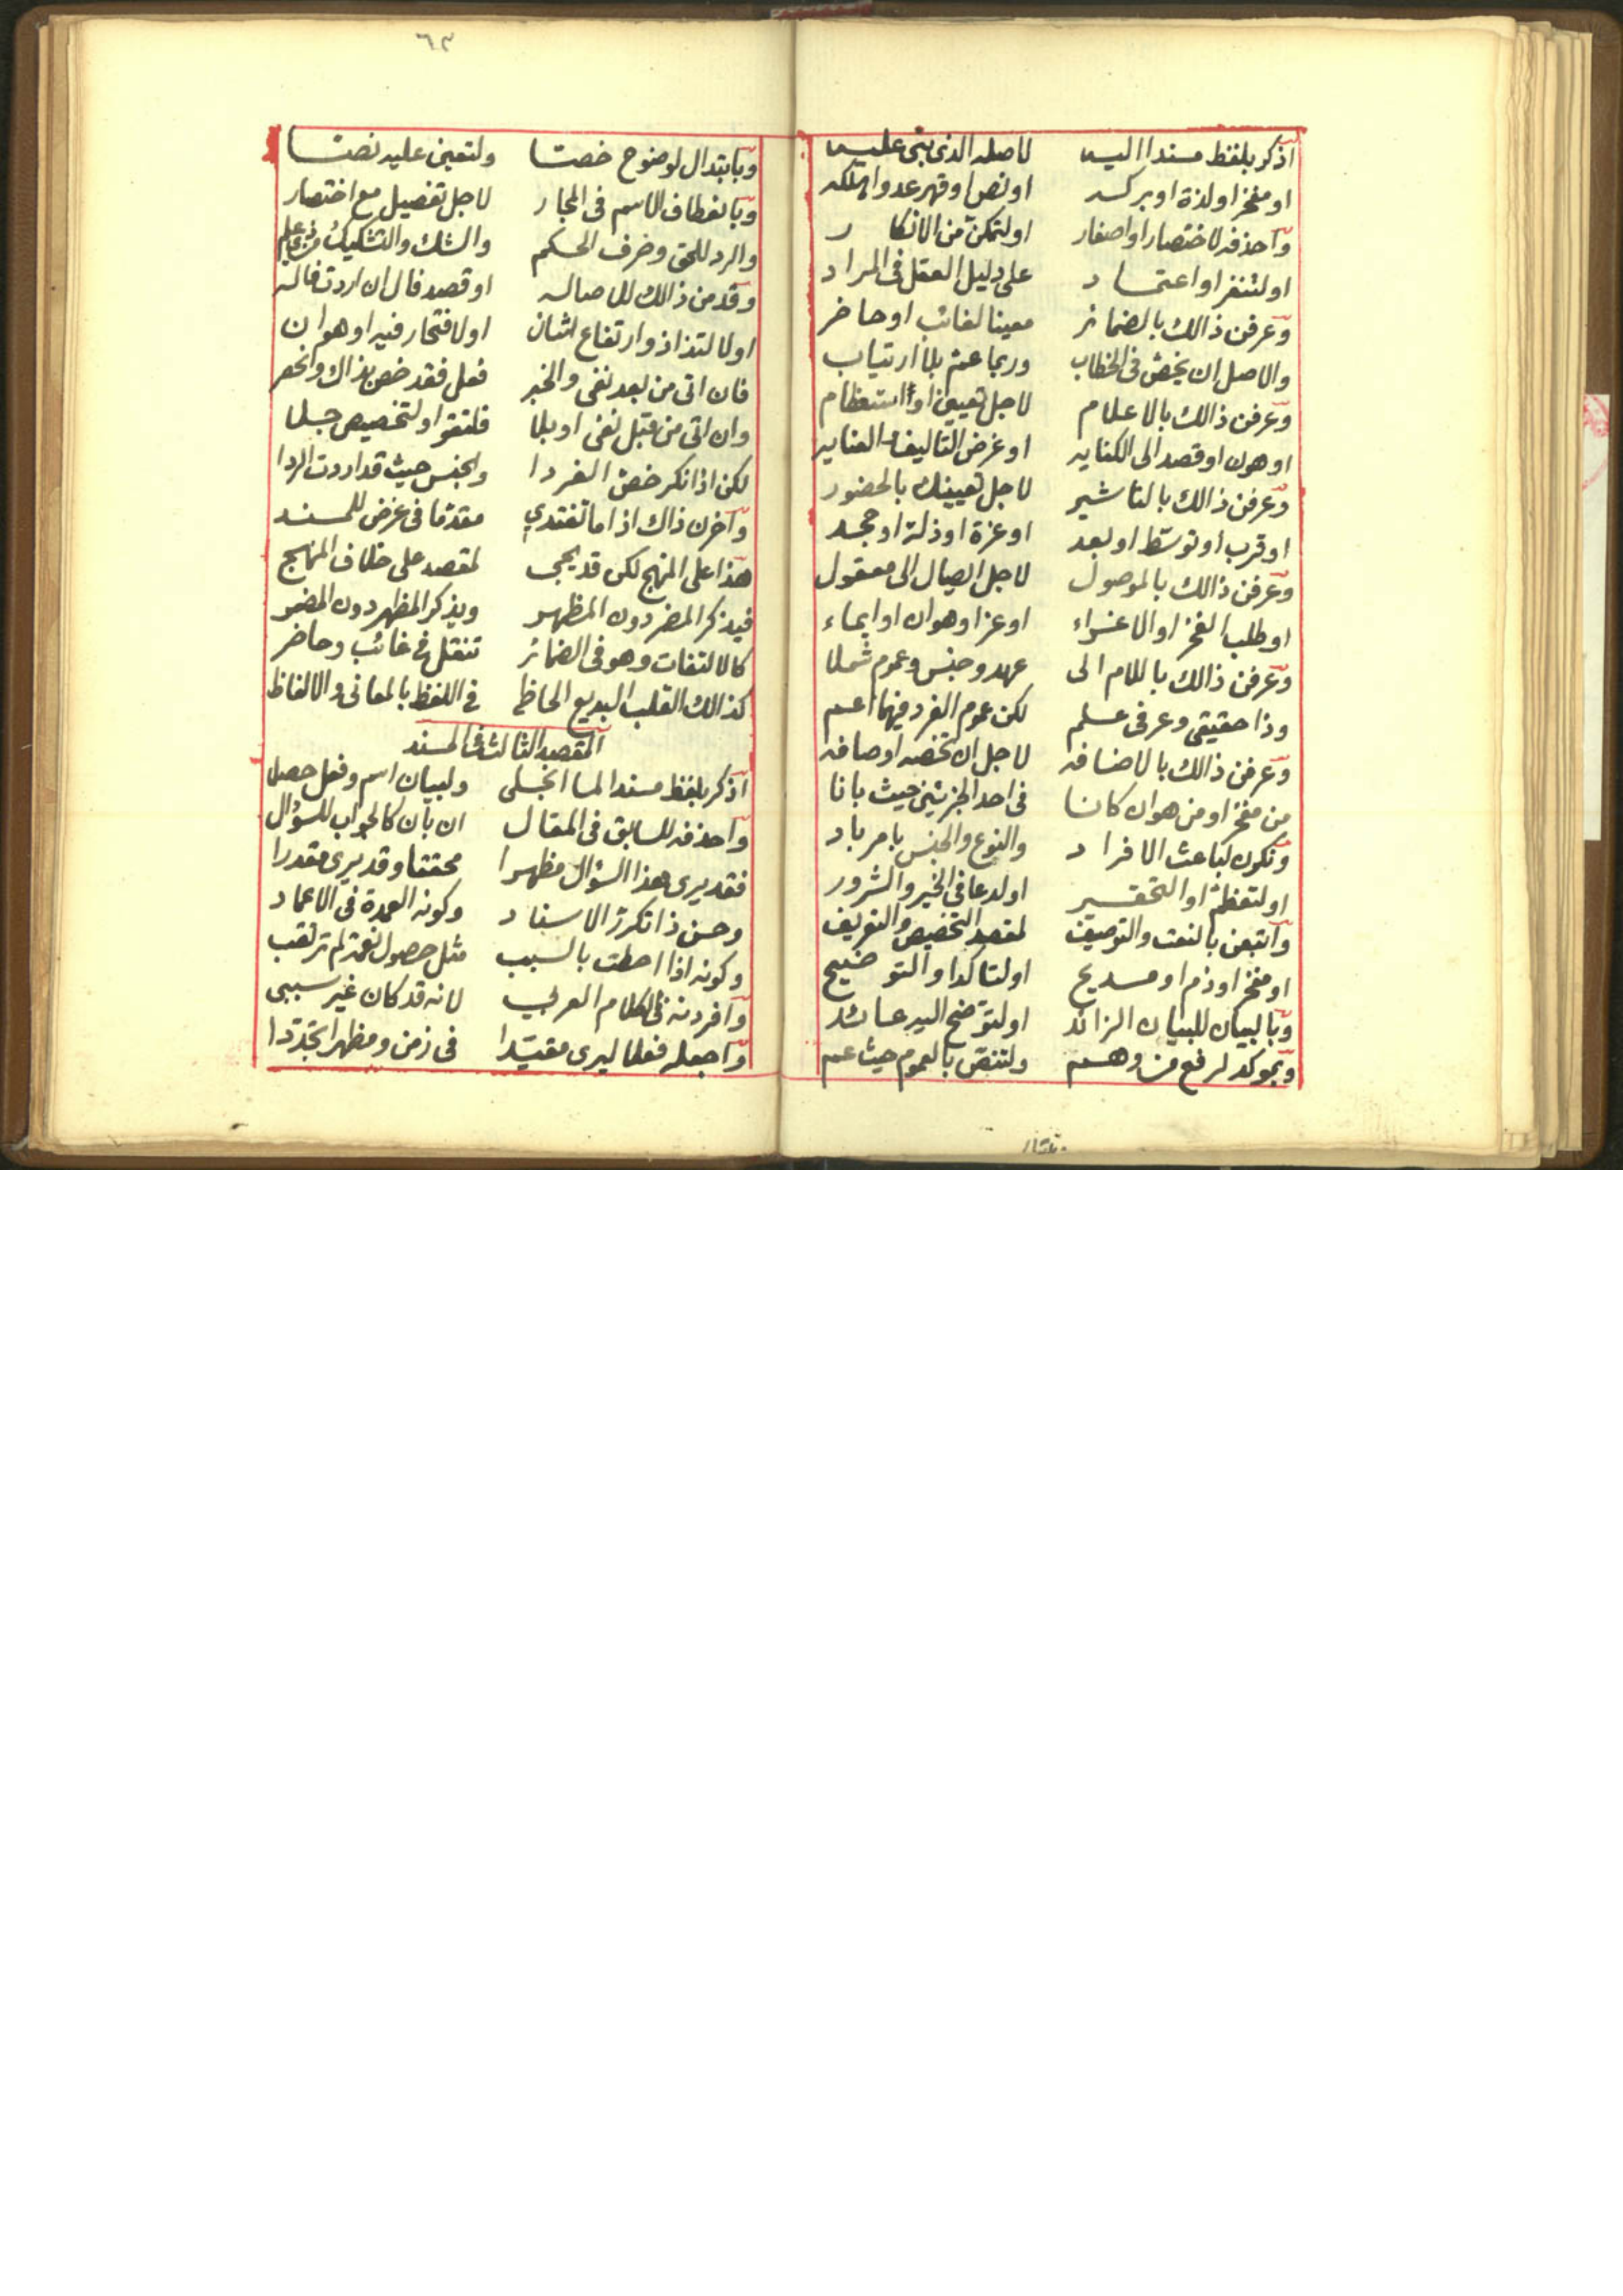 اذكر بلفظ مسندا اليه لاصله الذي بني عليه
او مفخر او لذة او بركه او نص او قهر عدو اهلكه
واحذفه لاختصار او اصغار او لتمكن من الانكار
او لتنفر او اعتماد على دليل العقل في المراد
وعرفن ذالك بالضمائر معينا لغائب او حاضر
والاصل ان يخص في الخطاب وربما عم بلا ارتياب
وعرفن ذالك بالاعلام لاجل تعيين او استعظام
او هون او قصد الى الكنايه او غرض التاليف والعنايه
وعرفن ذالك بالتاشير لاجل تعيينك بالحضور
او قرب او توسط او بعد او عزة او ذلة او جحد
وعرفن ذالك بالموصول لاجل ايصال الى معقول
او طلب الفخر او الاغراء او عز او هوان او ايماء
وعرفن ذالك باللام الى عهد وجنس وعموم شملا
وذا حقيقي وعرفي علم لكن عموم الفرد فيهما اعم
وعرفن ذالك بالاضافه لاجل ان تخصه اوصافه
من مفخر او من هوان كانا في احد الجزئين حيث بانا
ونكرن لباعث الافراد والنوع والجنس بامر باد
او لتعظم او التحقير او لدعا في الخير والشرور
واتبعن بالنعت والتوصيف لمقصد التخصيص والتعريف
او مفخر او ذم او مديح او لتاكد او التوضيح
وبالبيان للبيان الزائد او لتوضح اليه عائد
وبموكد لرفع من وهم ولتنص بالعموم حيث عم
وبابتدال
٦٣
وبابتدال لوضوح خصتا ولتعين عليه نصتا
وبانعطاف للاسم في المجار لاجل تفصيل مع اختصار
والرد للحق وصرف الحكم والشك والتشكيك من ذي علم
وقدمن ذالك للاصاله او قصد فال ان اردت فاله
او لالتذاذ وارتفاع لشان او لافتخار فيه او هوان
فان اتى من بعد نفي والخبر فعل فقد خص بذاك وانحصر
وان اتى من قبل نفي او بلا فلتقو او لتخصيص جلا
لكن اذا نكر خص الفردا والجنس حيث قد اردت الردا
واخرن ذاك اذا ما تغتدي مقدما في غرض للمسند
هذا على المنهج لكن قد يجي لمقصد على خلاف المنهج
فيذكر المضمر دون المظهر ويذكر المظهر دون المضمر
كالالتفات وهو في الضمائر تنقل في غائب وحاضر
كذالك القلب البديع الحاظ في اللفظ بالمعاني والالفاظ
المقصد الثالث في المسند
اذكر بلفظ مسندا لما انجلى ولبيان اسم وفعل حصلا
واحذفه للسابق في المقال ان بان كالجواب للسؤال
فقد يرى هذا السؤال مظهرا محققا وقد يرى مقدرا
وحسن ذا تكرر الاسناد وكونه العمدة في الاعماد
وكونه اذا احطت بالسبب مثل حصول نعمة لم ترتقب
وافردنه في الكلام العربي لانه قد كان غير سببي
واجعله فعلا ليرى مقيدا في زمن ومظهرا تجددا